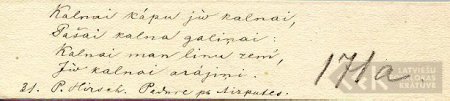 Kalnai kāpu jūr kalnai,
Pašai kalna galiņai:
Kalnai man linu zemi,
Jūr kalnai arājiņi.
21. P. Hirsch. Pedwrē pē Aizputes.
171a
LATVIEŠU
FOLKLORAS
KRĀTUVE